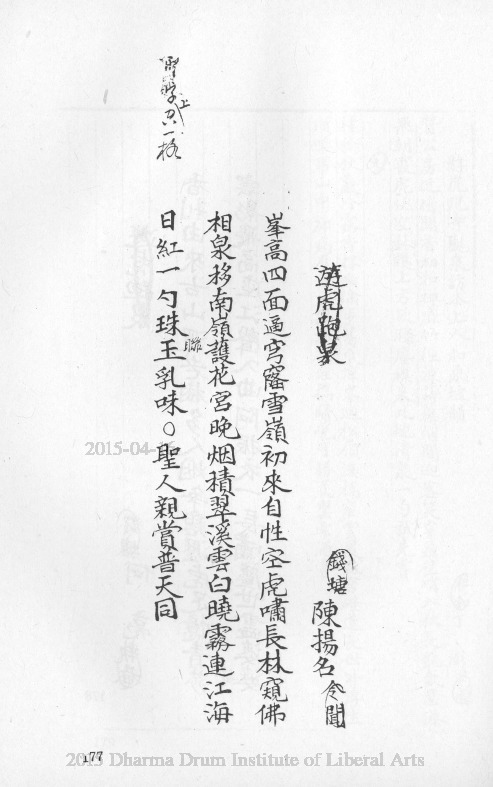 遊虎跑泉
錢塘 陳揚名 令聞
峯高四面逼穹窿雪嶺初來自性空虎嘯長林窺佛
相泉移南嶺護花宮晚烟積翠溪雲白曉霧連江海
日紅一勺珠玉乳味○聖人親賞普天同
聯
字上 一格
177
2015-04-
2015 Dharma Drum Institute of Liberal Arts